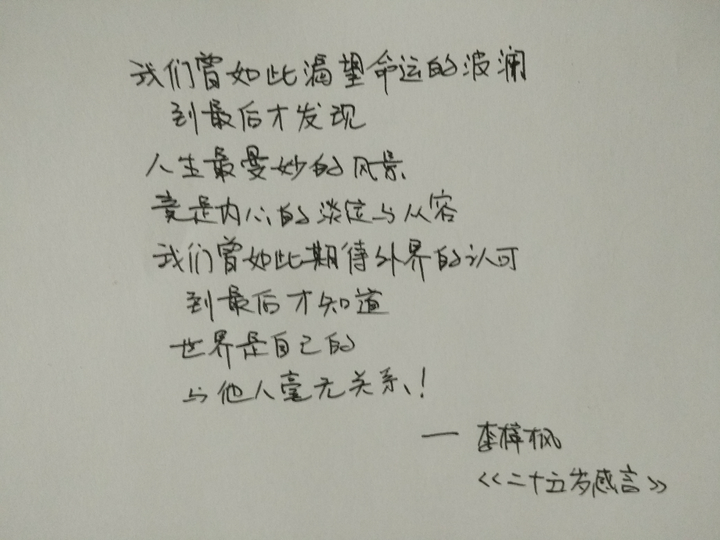 我们曾如此渴望命运的波澜
到最后才发现
人生最曼妙的风景
竟是内心的淡定与从容
我们曾如此期待外界的认可
到最后才知道
世界是自己的
与他人毫无关系!
— 李梓枫
《二十五岁感言》